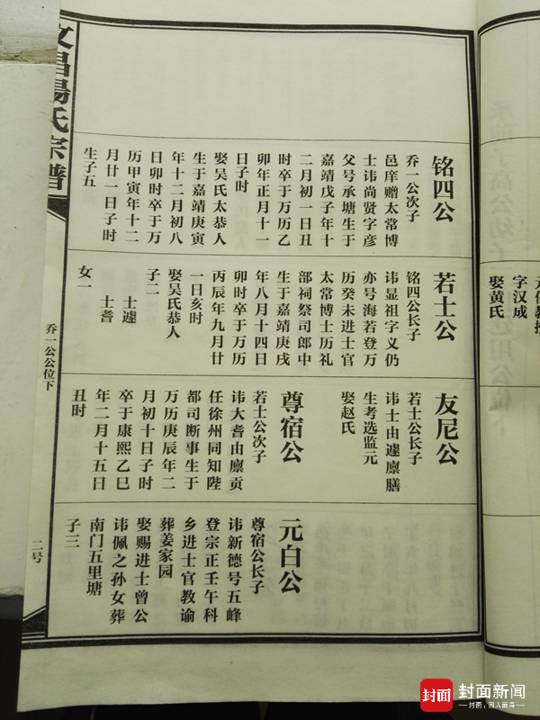 字汉成
娶黄氏
铭四公
乔一公次子
邑庠赠太常博
士讳尚贤字彦
父号承塘生于
嘉靖戊子年十
二月初一日丑
时卒于万历乙
卯年正月十一
日子时
娶吴氏太恭人
生于嘉靖庚寅
年十二月初八
日卯时卒于万
历甲寅年十二
月廿一日子时
生子五
若士公
铭四公长子
讳显祖字义仍
亦号海若登万
历癸未进士官
太常博士历礼
部祠祭司郎中
生于嘉靖庚戌
年八月十四日
卯时卒于万历
丙辰年九月廿
一日亥时
娶吴氏恭人
子二
士遽
士耆
女一
友尼公
若士公长子
讳士由遽廪膳
生考选监元
娶赵氏
尊宿公
若士公次子
讳大耆由廪贡
任徐州同知陛
都司断事生于
万历庚辰年二
月初十日子时
卒于康熙乙巳
年二月十五日
丑时
元白公
尊宿公长子
讳新德号五峰
登宗正壬午科
乡进士官教谕
葬姜家园
娶赐进士曾公
讳佩之孙女葬
南门五里塘
子三
文昌湯氏宗譜
乔一公公位下
二号
封面 封面新闻